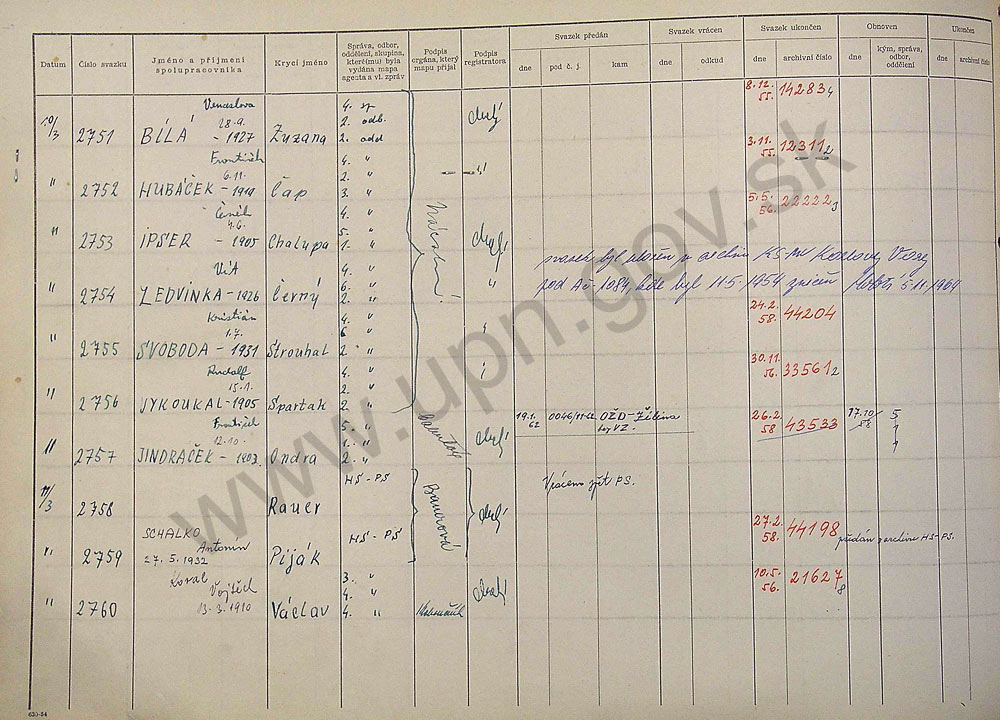 Datum
Číslo svazku
Jméno a příjmení
spolupracovníka
Krycí jméno
Správa, odbor,
oddělení, skupina,
které(mu) byla
vydána mapa
agenta a vl. zpráv
Podpis
orgána, který
mapu přijal
Podpis
registratora
Svazek předán
dne
pod č. j.
kam
Svazek vrácen
dne
odkud
Svazek ukončen
dne
archivní číslo
Obnoven
dne
kým, správa,
odbor,
oddělení
Ukončen
dne
archivní číslo
Venceslava
28.9.
10/3 2751 BÍLÁ - 1927 Zuzana
4. sp
2. odb.
2. odd
8.12.
55. 142834
František
6.11.
" 2752 HUBÁČEK - 1919 Čap
4. "
2. "
3. "
3.11.
55. 12311 2
Čeněk
4.6.
" 2753 IPSER - 1905 Chalupa
4. "
5. "
1. "
5.5.
56. 22222 3
Vít
" 2754 ZEDVINKA - 1926 Černý
4. "
6. "
2. "
svazek byl uložen v archivu KS-MV Karlovy Vary
pod Ač 1084, kde byl 11.5.1954 zničen
5.11.1964
Kristián
1.7.
" 2755 SVOBODA - 1931 Strouhal
4. "
6 "
2. "
24.2.
58. 44204
Rudolf
15.1.
" 2756 VYKOUKAL - 1905 Spartak
4. "
2. "
2. "
30.11.
56. 33561 2
František
12.10.
" 2757 JINDRÁČEK - 1903 Ondra
5. "
1. "
2. "
19.1.
62 0046/ OŽD-Žilina
VZ.
26.2.
58 43533
17.10
58 5
11/3 2758 Rauer
HS - PS
Bauerová
Vráceno zpět PS.
SCHALKO
Antonín
" 2759 27.5.1932 Piják
HS - PS
27.2.
58. 44198
předán z archivu HS-PS.
Koval
Vojtěch
" 2760 13.3.1910 Václav
3. "
4. "
4. "
10.5.
56. 21627 8
630-54
www.upn.gov.sk